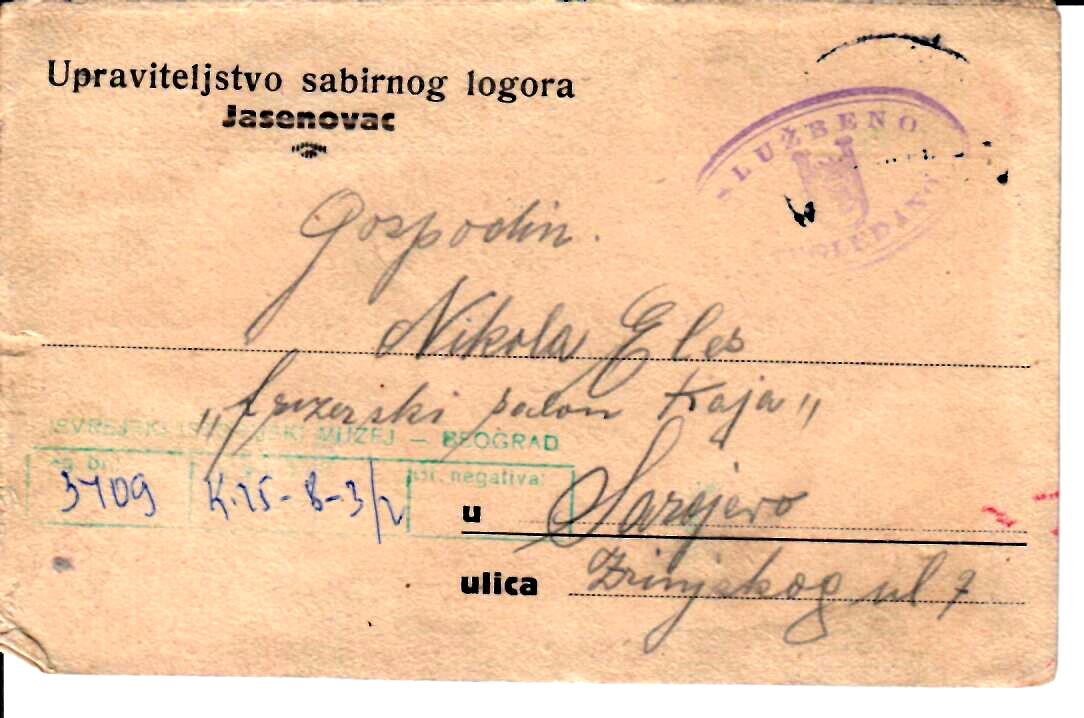 Upraviteljstvo sabirnog logora
Jasenovac
SLUŽBENO
PREGLEDANO
Gospodin.
Nikola Eles
„frizerski salon Kraja"
JEVREJSKI ISTORIJSKI MUZEJ — BEOGRAD
br. negativa:
3409 K.25-8-3/2
u Sarajevo
ulica Zrinjskog ul 7